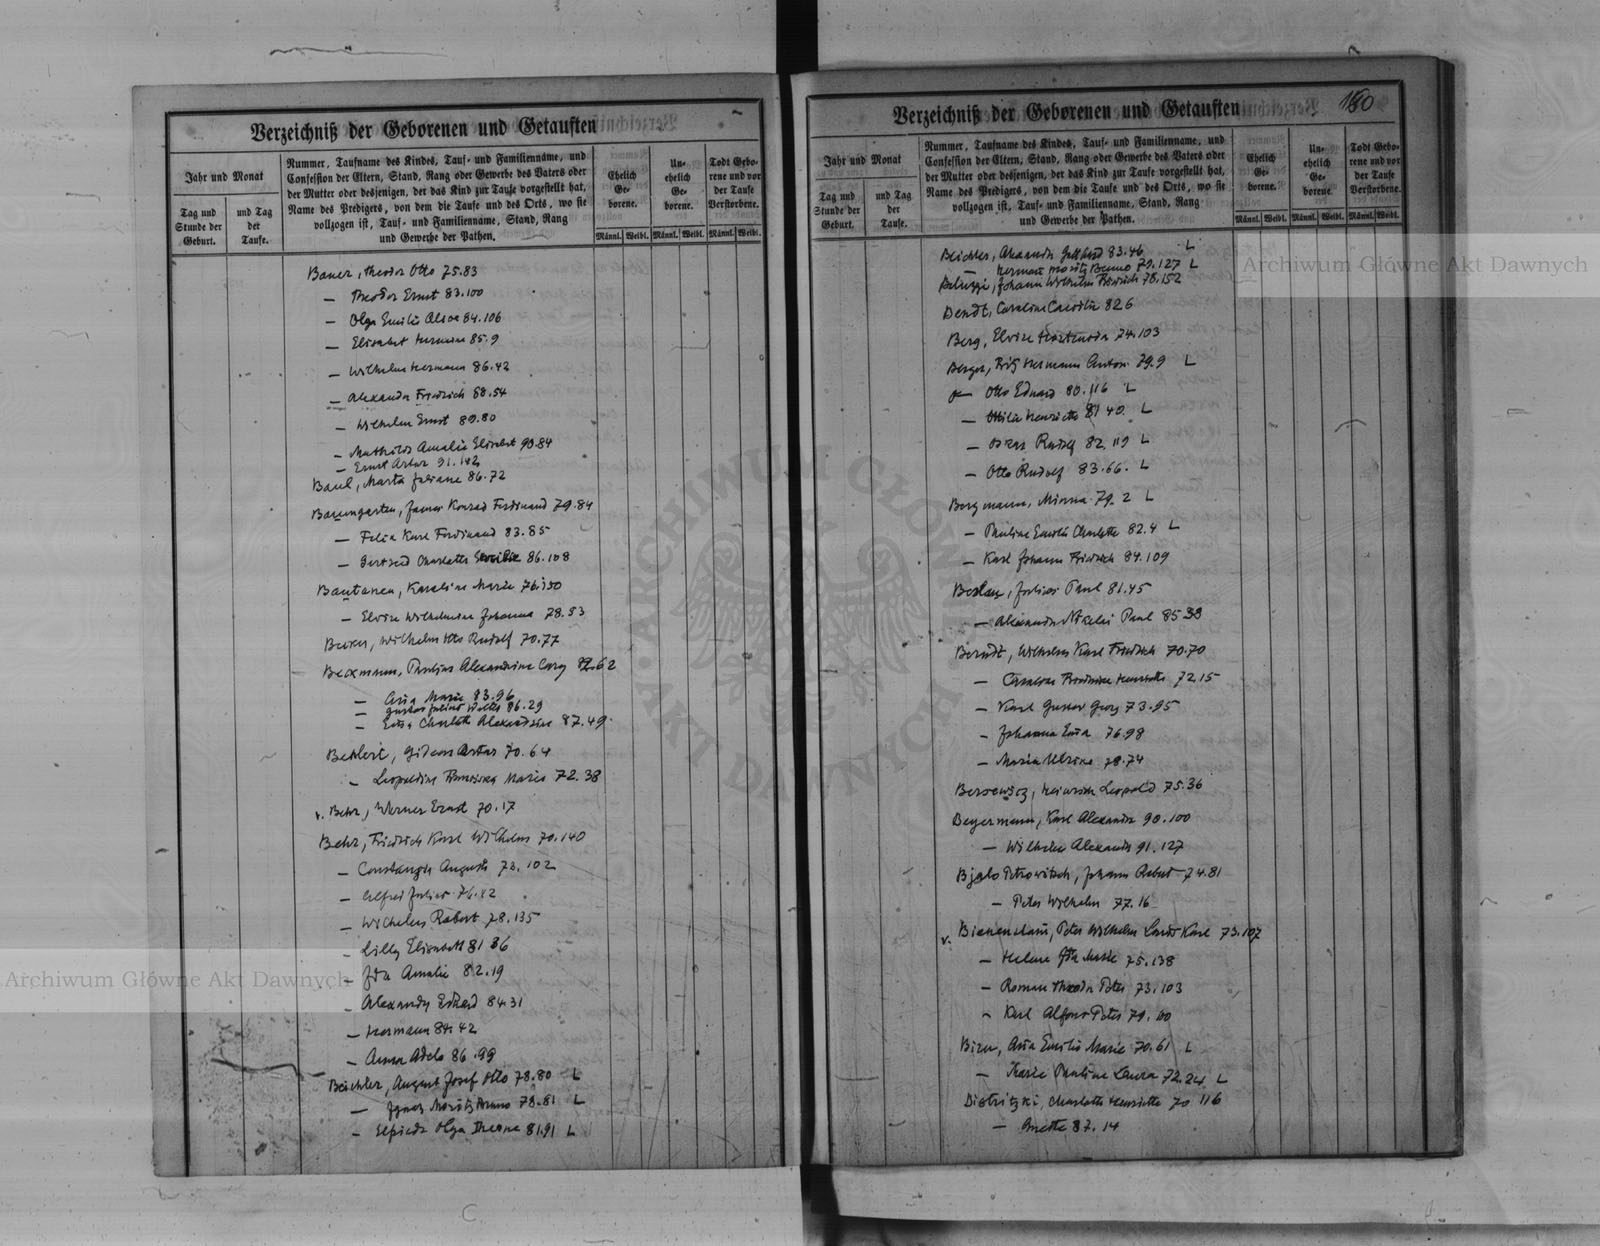 Verzeichniß der Geborenen und Getauften
Jahr und Monat
Tag und Stunde der Geburt.
und Tag der Taufe.
Nummer, Taufname des Kindes, Tauf- und Familienname, und
Confession der Eltern, Stand, Rang oder Gewerbe des Vaters oder
der Mutter oder desjenigen, der das Kind zur Taufe vorgestellt hat,
Name des Predigers, von dem die Taufe und des Orts, wo sie
vollzogen ist, Tauf- und Familienname, Stand, Rang
und Gewerbe der Pathen.
Ehelich Ge- borene.
Un- ehelich Ge- borene.
Todt Gebo- rene und vor der Taufe Verstorbene.
Männl. Weibl. Männl. Weibl. Männl. Weibl.
Bauer, Theodor Otto 75.83
— Theodor Ernst 83.100
— Olga Emilie Alice 84.106
— Elisabet Hermine 85.9
— Wilhelm Hermann 86.42
— Alexander Friedrich 88.54
— Wilhelm Ernst 89.80
— Mathilde Amalie Elisabet 90.84
— Ernst Artur 91.142
Baul, Marta Juliane 86.72
Baumgarten, Konrad Ferdinand 79.84
— Felix Karl Ferdinand 83.85
— Gertrud Charlotte 86.108
Karoline Marie
— Elvire Wilhelmine Johanna 78.53
Becker, Wilhelm Otto Rudolf 70.77
Beckmann, Alexandrine
— Marie 83.96
— Gustav Julius Walter 86.29
— Charlotte Alexandrine 87.49
Gideon Artur 70.64
— Leopoldine Marie 72.38
v. Behr, Werner Ernst 70.17
Behr, Friedrich Karl Wilhelm 70.140
— Constanze Auguste 73.102
— Alfred Julius
— Wilhelm Robert 78.135
— Lilly Elisabeth 81 86
— Ida Amalie 82.19
— Alexander Eduard 84.31
— Hermann 84.42
— Anna Adele 86.99
Beichler, August Josef Otto 78.80 L
— Ignaz Moritz Bruno 78.81 L
— Olga 81.91 L
Verzeichniß der Geborenen und Getauften
Jahr und Monat
Tag und Stunde der Geburt.
und Tag der Taufe.
Nummer, Taufname des Kindes, Tauf- und Familienname, und
Confession der Eltern, Stand, Rang oder Gewerbe des Vaters oder
der Mutter oder desjenigen, der das Kind zur Taufe vorgestellt hat,
Name des Predigers, von dem die Taufe und des Orts, wo sie
vollzogen ist, Tauf- und Familienname, Stand, Rang
und Gewerbe der Pathen.
Ehelich Ge- borene.
Un- ehelich Ge- borene.
Todt Gebo- rene und vor der Taufe Verstorbene.
Männl. Weibl. Männl. Weibl. Männl. Weibl.
Beichler, Alexander Gotthard 83.46 L
— Hermann Moritz Benno 79.127 L
Johann Wilhelm Friedrich 78.152
Bendt, Caroline Caecilie 82 6
Berg, Elvire 74.103
Berger, Fritz Hermann Anton 79.9 L
— Otto Eduard 80.116 L
— Ottilie Henriette 81 40. L
— Oskar Rudolf 82.119 L
— Otto Rudolf 83.66. L
Bergmann, Minna 79.2 L
— Pauline Emilie Charlotte 82.4 L
— Karl Johann Friedrich 84.109
Julius Paul 81.45
— Alexander Nikolai Paul
Berndt, Wilhelm Karl Friedrich 70.70
— Henriette 72 15
— Karl Gustav Georg 73.95
— Johanna 76.98
— Maria Ulrike 78.74
Bersewicz, Heinrich Leopold 75.36
Beyermann, Karl Alexander 90.100
— Wilhelm Alexander 91.127
Bjalo Petrowitsch, Johann Robert 74.81
— Peter Wilhelm 77.16
v. Bienenstam, Peter Wilhelm Karl 73.107
— Helene Ida Marie 75.138
— Roman Theodor Peter
— Karl Alfons Peter 79.100
Emilie Marie 70.61 L
— Marie Pauline Laura 72.24 L
Charlotte Henriette 70 116
— Anette 87.14
Archiwum Główne Akt Dawnych
Archiwum Główne Akt Dawnych
ARCHIWUM GŁÓWNE AKT DAWNYCH